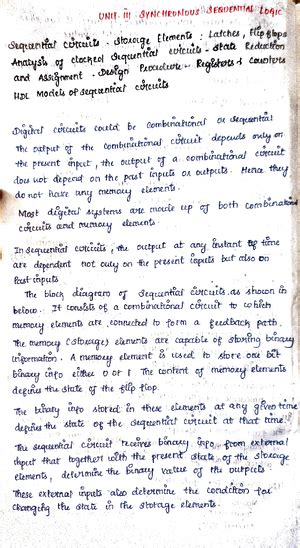 UNIT-III SYNCHRONOUS SEQUENTIAL LOGIC
Sequential circuits - Storage Elements : Latches, Flip flops
Analysis of clocked sequential circuits - State Reduction
and Assignment - Design Procedure - Registers & Counters
HDL Models of sequential circuits
Digital circuits could be combinational or sequential
The output of the combinational circuit depends only on
the present input, the output of a combinational circuit
does not depend on the past inputs or outputs. Hence they
do not have any memory elements.
Most digital systems are made up of both combinational
circuits and memory elements.
In sequential circuits, the output at any instant of time
are dependent not only on the present inputs but also on
Past inputs
The block diagram of Sequential circuits as shown in
below. It consists of a combinational circuit to which
memory elements are connected to form a feedback path.
The memory (storage) elements are capable of storing binary
information. A memory element is used to store one bit
binary info either 0 or 1 The content of memory elements
define the state of the flip flop.
The binary info stored in these elements at any given time
define the state of the sequential circuit at that time.
The sequential circuit receives binary info from external
input that together with the present state of the storage
elements, determine the binary value of the outputs
These external inputs also determine the condition for
changing the state in the storage elements.